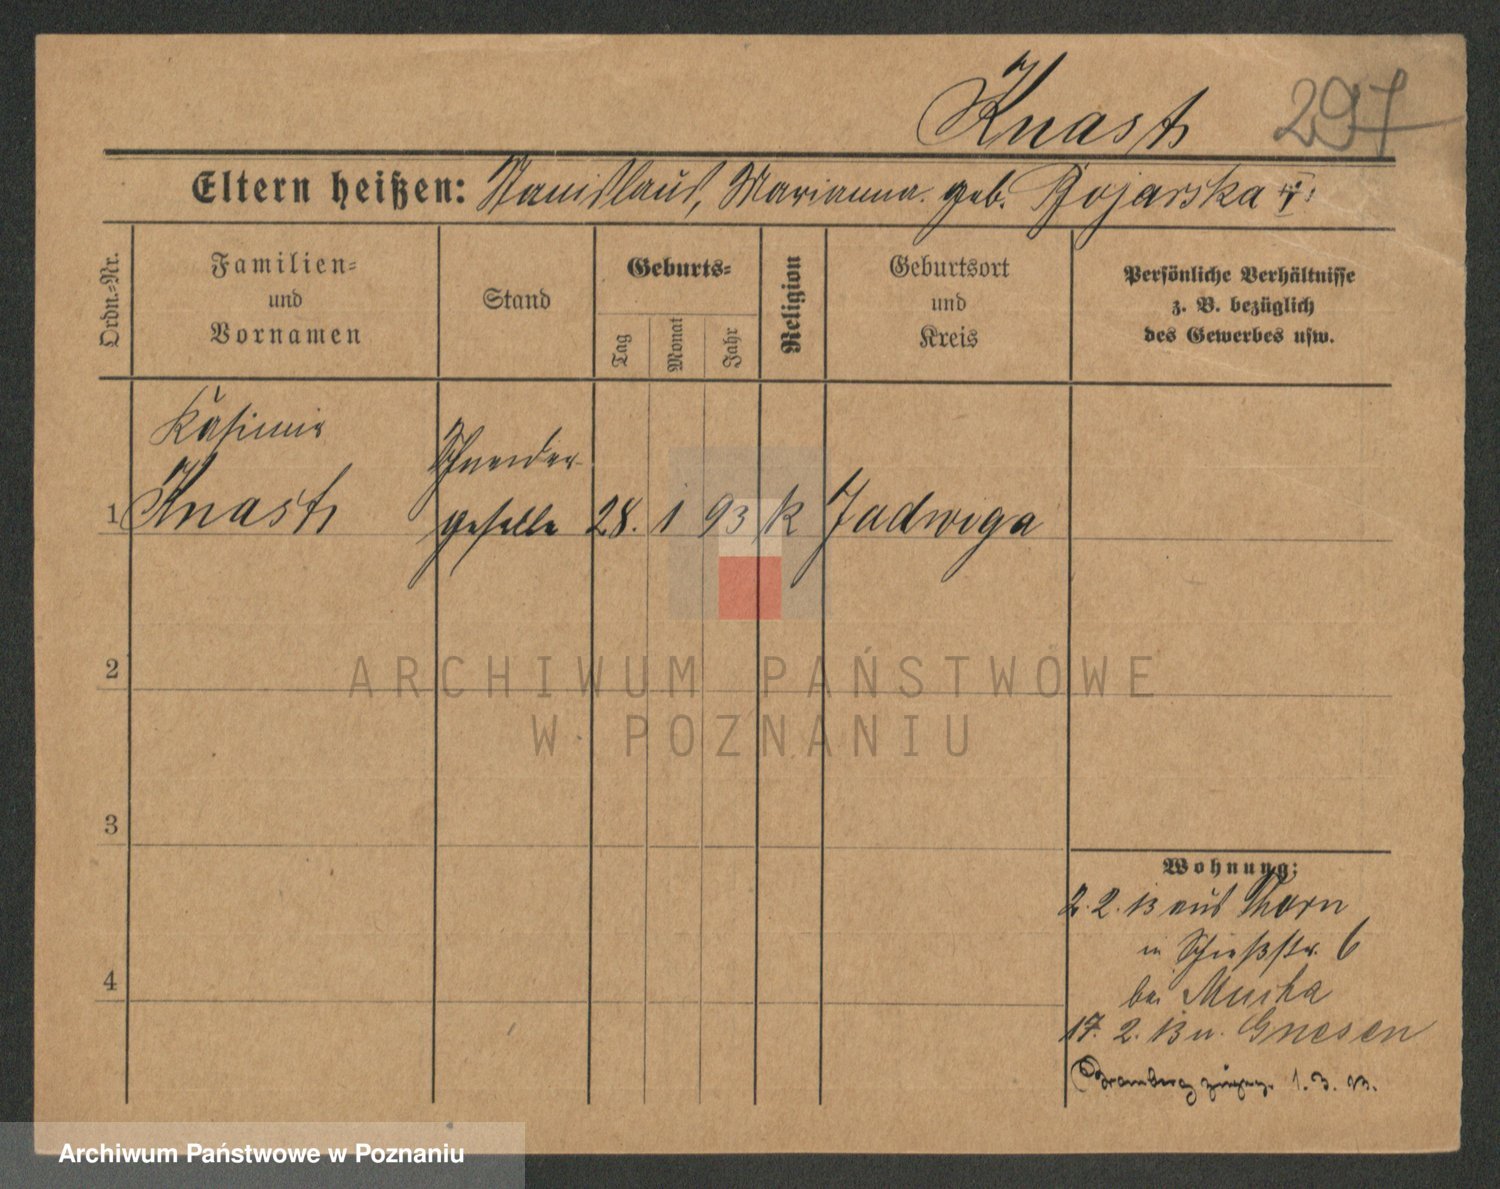 Knast 297
Eltern heißen: Stanislaus, Marianna geb. Bojarska
Ordn.=Nr.
Familien=
und
Vornamen
Stand
Geburts=
Tag
Monat
Jahr
Religion
Geburtsort
und
Kreis
Persönliche Verhältnisse
z. B. bezüglich
des Gewerbes usw.
Kasimir
Schneider
1 Knast geselle 28. 1 93 k Jadwiga
2
ARCHIWUM PAŃSTWOWE
W POZNANIU
3
Wohnung:
2. 2. 13 aus Thorn
in Schießstr. 6
bei
4
17. 2. 13 n. Gnesen
Bromberg 1. 3. 13.
Archiwum Państwowe w Poznaniu